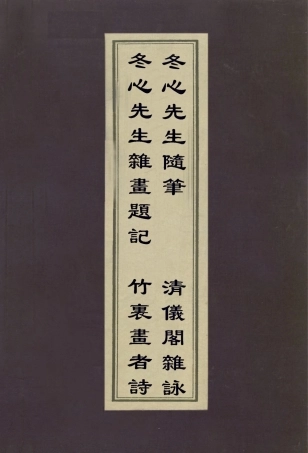 冬心先生隨筆　清儀閣雜詠
冬心先生雜畫題記　竹裏畫者詩